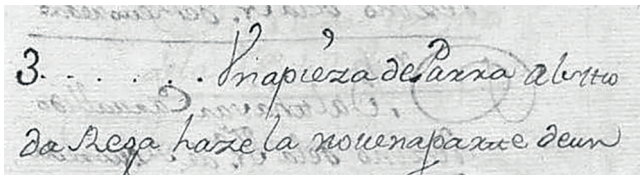 3. . . . . . . Vnapieza de Parra alsitio
da Rega haze la nouenaparte deun